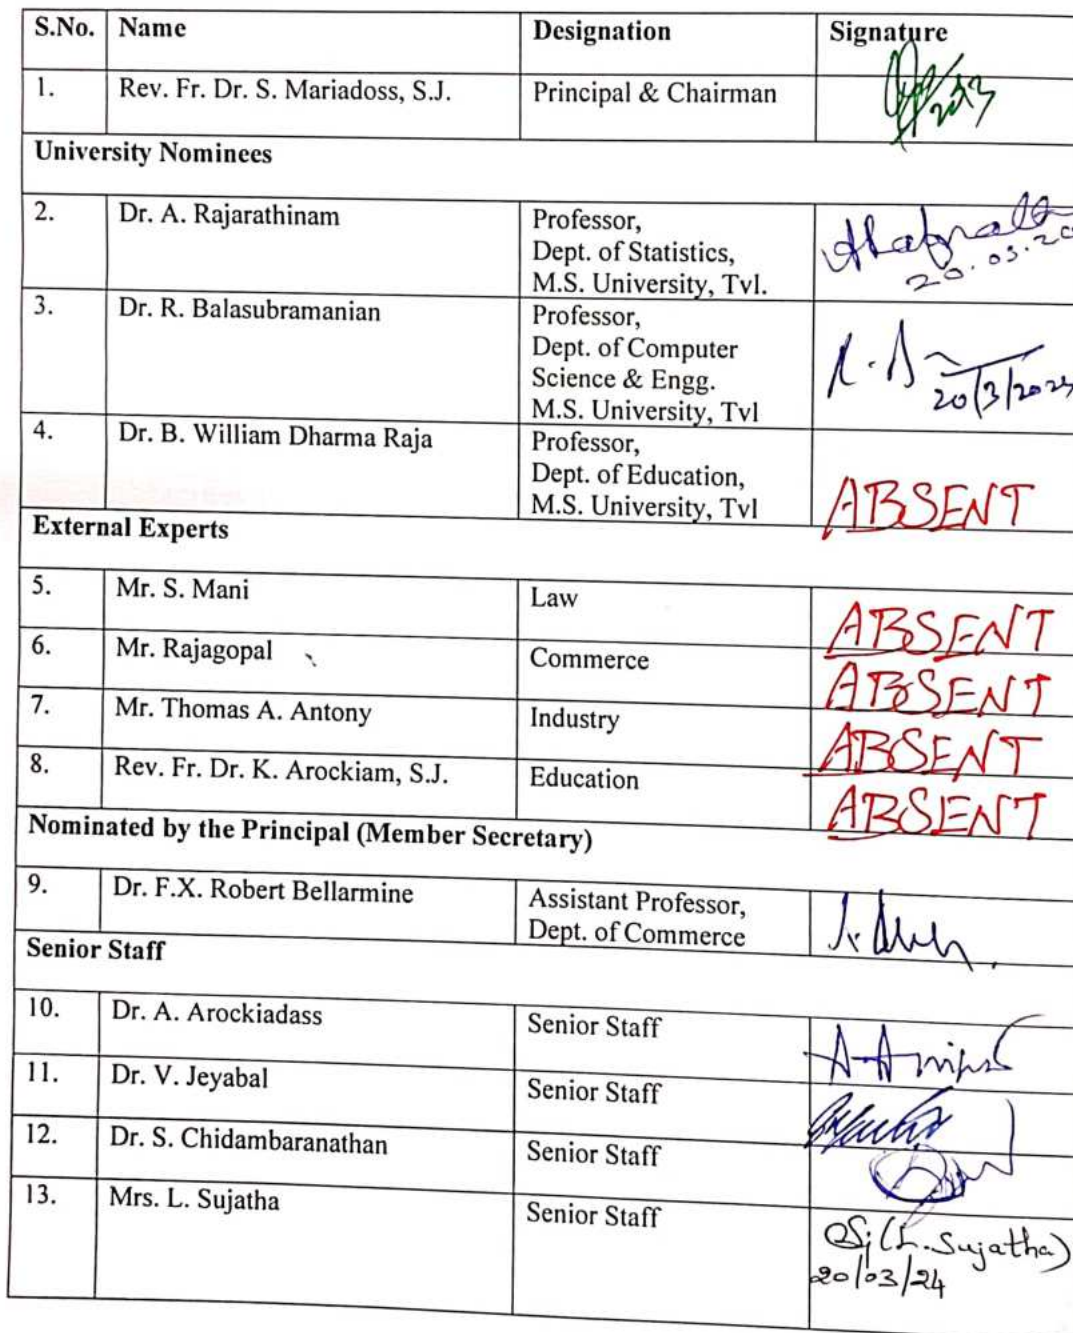 S.No. Name Designation Signature
1. Rev. Fr. Dr. S. Mariadoss, S.J. Principal & Chairman
University Nominees
2. Dr. A. Rajarathinam Professor,
Dept. of Statistics,
M.S. University, Tvl.
20.03.20
3. Dr. R. Balasubramanian Professor,
Dept. of Computer
Science & Engg.
M.S. University, Tvl
20/3/2024
4. Dr. B. William Dharma Raja Professor,
Dept. of Education,
M.S. University, Tvl ABSENT
External Experts
5. Mr. S. Mani Law ABSENT
6. Mr. Rajagopal Commerce ABSENT
7. Mr. Thomas A. Antony Industry ABSENT
8. Rev. Fr. Dr. K. Arockiam, S.J. Education ABSENT
Nominated by the Principal (Member Secretary)
9. Dr. F.X. Robert Bellarmine Assistant Professor,
Dept. of Commerce
Senior Staff
10. Dr. A. Arockiadass Senior Staff
11. Dr. V. Jeyabal Senior Staff
12. Dr. S. Chidambaranathan Senior Staff
13. Mrs. L. Sujatha Senior Staff
(L. Sujatha)
20/03/24